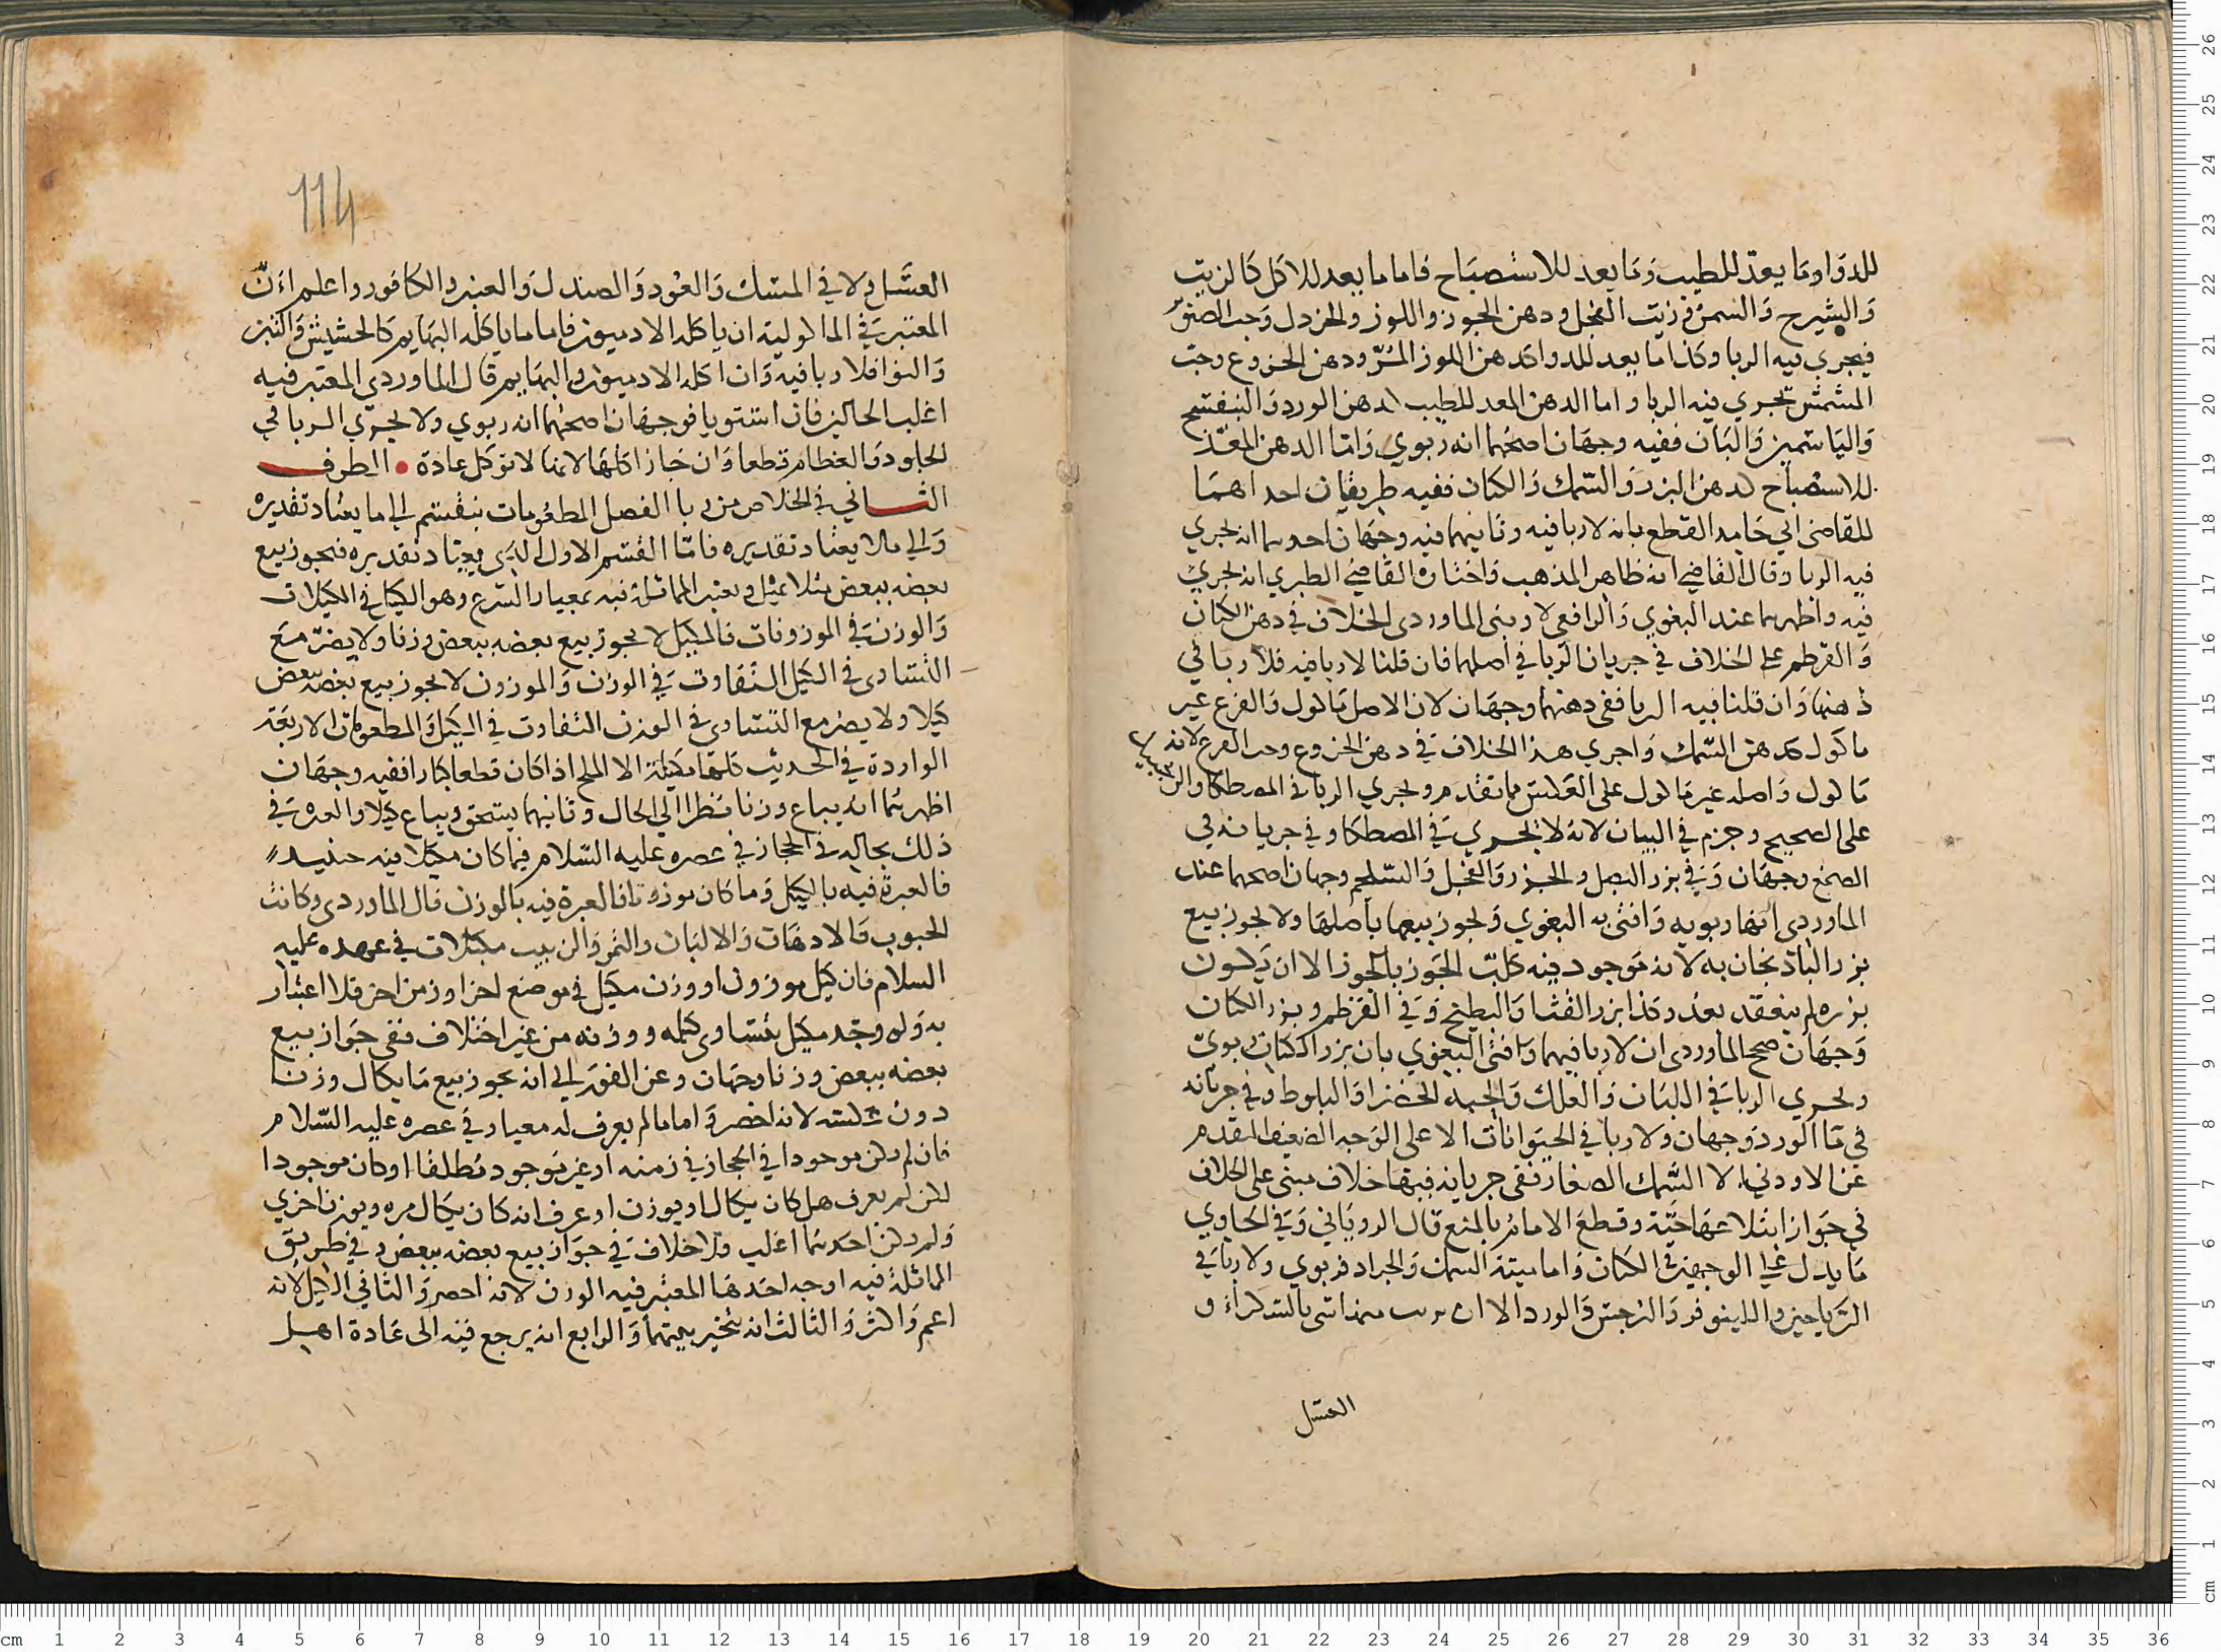 للدوا وما يعد للطيب وما يعد للاستصباح فاما ما يعد للاكل كالزيت
والشيرج والسمن وزيت الفجل ودهن الجوز واللوز والخردل وحب الصنوبر
فيجري فيه الربا وكذا ما يعد للدوا كدهن اللوز المر ودهن الخروع وحب
المشمش تجري فيه الربا واما الدهن المعد للطيب كدهن الورد والبنفسج
والياسمين والبان ففيه وجهان اصحهما انه ربوي واما الدهن المعد
للاستصباح كدهن البزر والسمك والكتان ففيه طريقان احداهما
للقاضي ابي حامد القطع بانه لا ربا فيه وثانيهما فيه وجهان احدهما انه يجري
فيه الربا وقال القاضي انه ظاهر المذهب واختاره القاضي الطبري انه يجري
فيه واظهرهما عند البغوي والرافعي لا وبنى الماوردي الخلاف في دهن الكتان
والقرطم على الخلاف في جريان الربا في اصلهما فان قلنا لا ربا فيه فلا ربا في
دهنهما وان قلنا فيه الربا ففي دهنهما وجهان لان الاصل ماكول والفرع غير
ماكول كدهن السمك واجري هذا الخلاف في دهن الخروع وحب القرع لانه
ماكول واصله غير ماكول على العكس مما تقدم ويجري الربا في المصطكا والزنجبيل
على الصحيح وجزم في البيان لانه لا يجري في المصطكا وفي جريانه في
الصمغ وجهان وفي بزر البصل والجزر والفجل والسلجم وجهان اصحهما عند
الماوردي انها ربويه وافتى به البغوي ويجوز بيعها باصلها ولا يجوز بيع
بزر الباذنجان به لانه موجود فيه كلب الجوز بالجوز الا ان يكون
بزره لم ينعقد بعد وكذا بزر القثا والبطيخ وفي القرطم وبزر الكتان
وجهان صحح الماوردي ان لا ربا فيهما وافتى البغوي بان بزر الكتان ربوي
ويجري الربا في اللبان والعلك والحبه الخضرا والبلوط وفي جريانه
في ما الورد وجهان ولا ربا في الحيوانات الا على الوجه الضعيف المتقدم
عن الاودني الا السمك الصغار ففي جريانه فيها خلاف مبني على الخلاف
في جواز ابتلاعها حية وقطع الامام بالمنع قال الروياني وفي الحاوي
ما يدل على الوجهين في الكتان واما ميتة السمك والجراد فربوي ولا ربا في
الرياحين واللينوفر والنرجس والورد الا ان منها شي بالسكر او
العسل
114
العسل ولا في المسك والعود والصندل والعنبر والكافور واعلم ان
المعتبر في الماكولية ان ياكله الادميون فاما ما ياكله البهايم كالحشيش والتبن
والنوا فلا ربا فيه وان اكله الادميون والبهايم قال الماوردي المعتبر فيه
اغلب الحالين فان استويا فوجهان اصحهما انه ربوي ولا يجري الربا في
الجلود والعظام قطعا وان جاز اكلها لانها لا توكل عادة • الطرف
الثاني في الخلاص من ربا الفصل المطعومات ينقسم الى ما يعتاد تقديره
والى ما لا يعتاد تقديره فاما القسم الاول الذي يعتاد تقديره فيجوز بيع
بعضه ببعض مثلا بمثل ويعتبر المماثلة فيه بمعيار الشرع وهو الكيل في المكيلات
والوزن في الموزونات فالمكيل لا يجوز بيع بعضه ببعض وزنا ولا يضر مع
التساوى في الكيل التفاوت في الوزن والموزون لا يجوز بيع بعضه ببعض
كيلا ولا يضر مع التساوى في الوزن التفاوت في الكيل والمطعومات الاربعة
الواردة في الحديث كلها مكيلة الا الملح اذا كان قطعا كبارا ففيه وجهان
اظهرهما انه يباع وزنا نظرا الى الحال وثانيهما يسحق ويباع كيلا والعبرة في
ذلك بحاله في الحجاز في عصره عليه السلام فما كان مكيلا فيه حينيد
فالعبرة فيه بالكيل وما كان موزونا فالعبرة فيه بالوزن قال الماوردي وكانت
الحبوب والادهان والالبان والتمر والزبيب مكيلات في عهده عليه
السلام فان كيل موزون او وزن مكيل في موضع اخر او زمن اخر فلا اعتبار
به ولو وجد مكيل يتساوى كيله ووزنه من غير اختلاف ففي جواز بيع
بعضه ببعض وزنا وجهان وعن القفال انه يجوز بيع ما يكال وزنا
دون عكسه لانه اخصر واما ما لم يعرف له معيار في عصره عليه السلام
فان لم يكن موجودا في الحجاز في زمنه او غير موجود مطلقا او كان موجودا
لكن لم يعرف هل كان يكال او يوزن او عرف انه كان يكال مره ويوزن اخري
ولم يكن احدهما اغلب فلا خلاف في جواز بيع بعضه ببعض وفي طريق
المماثلة فيه اوجه احدها المعتبر فيه الوزن لانه احصر والثاني الكيل لانه
اعم واكثر والثالث انه يتخير بينهما والرابع انه يرجع فيه الى عادة اهل